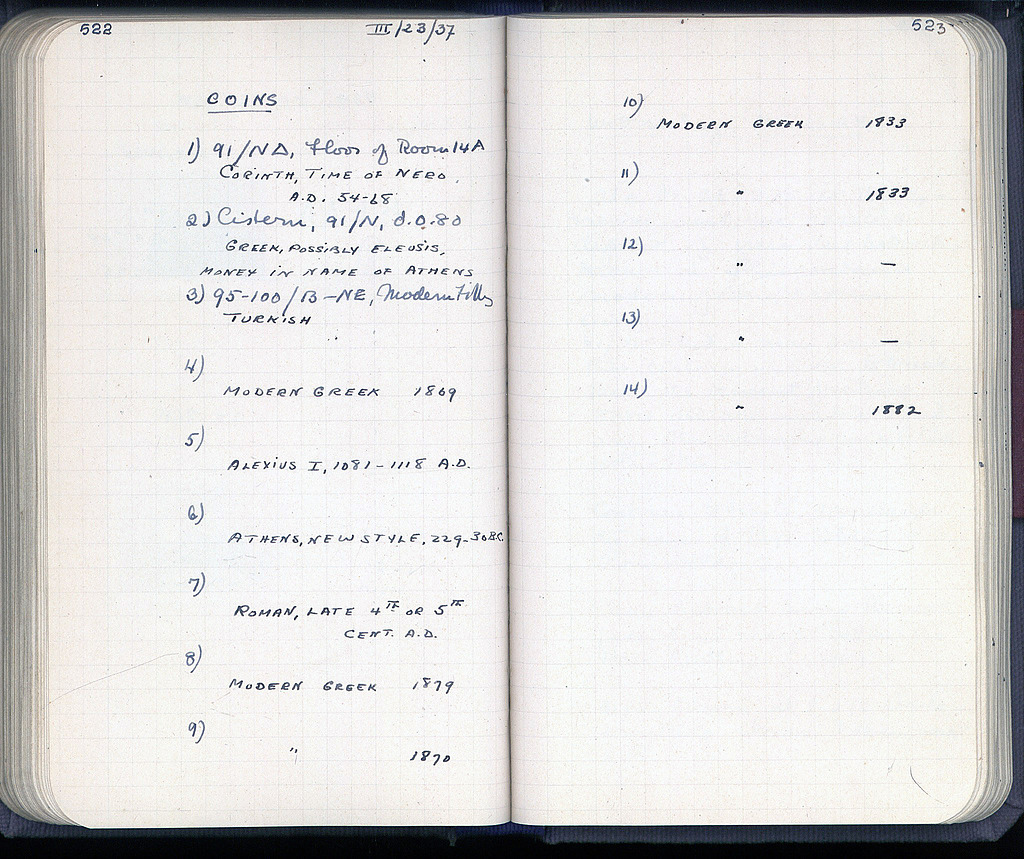 522
III/23/37
COINS
1) 91/NΔ, Floor of Room 14A
CORINTH, TIME OF NERO,
A.D. 54-68
2) Cistern, 91/N, d.0.80
GREEK, POSSIBLY ELEUSIS,
MONEY IN NAME OF ATHENS
3) 95-100/B-NE, Modern Fill
TURKISH
4)
MODERN GREEK 1869
5)
ALEXIUS I, 1081-1118 A.D.
6)
ATHENS, NEW STYLE, 229-30 B.C.
7)
ROMAN, LATE 4TH OR 5TH
CENT. A.D.
8)
MODERN GREEK 1879
9)
" 1870
523
10)
MODERN GREEK 1833
11)
" 1833
12)
" —
13)
" —
14)
" 1882